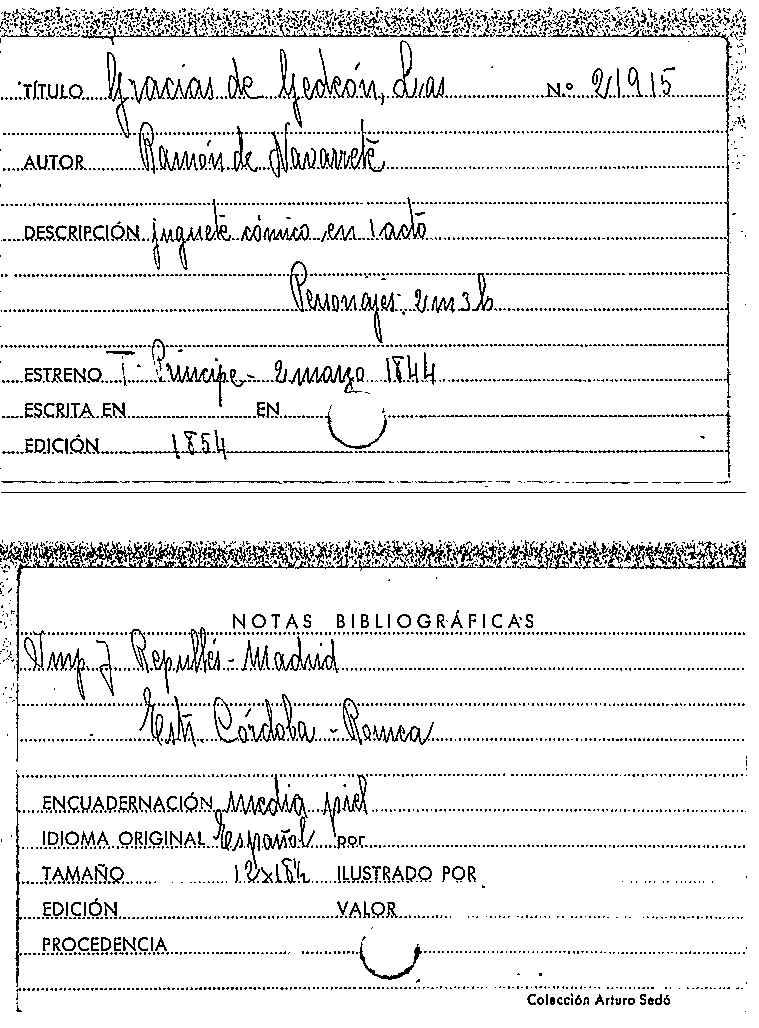 TÍTULO Gracias de Gedeón, Las N.º 21915
AUTOR Ramón de Navarrete
DESCRIPCIÓN juguete cómico en 1 acto
Personajes: 2m 3h
ESTRENO T. Príncipe - 2 marzo 1844
ESCRITA EN EN
EDICIÓN 1854
NOTAS BIBLIOGRÁFICAS
Imp J Repullés - Madrid
Estr. Córdoba - Romea
ENCUADERNACIÓN media piel
IDIOMA ORIGINAL Español por
TAMAÑO 12x18½ ILUSTRADO POR
EDICIÓN VALOR
PROCEDENCIA
Colección Arturo Sedó